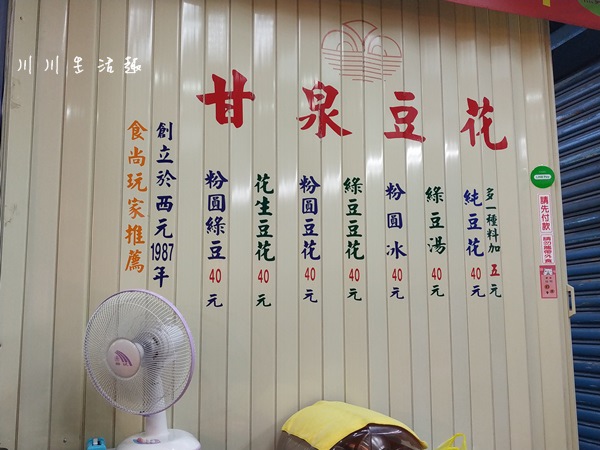 川川生活趣
甘泉豆花
多一種料加五元
純豆花40元
綠豆湯40元
粉圓冰40元
綠豆豆花40元
粉圓豆花40元
花生豆花40元
粉圓綠豆40元
創立於西元1987年
食尚玩家推薦
請先付款
請勿攜帶外食